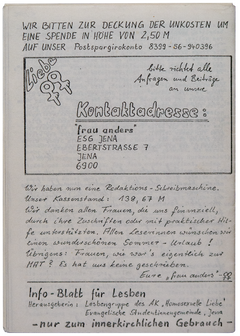 WIR BITTEN ZUR DECKUNG DER UNKOSTEN UM
EINE SPENDE IN HÖHE VON 2,50 M
AUF UNSER Postspargirokonto 8399-56-940396
Liebe
bitte richtet alle
Anfragen und Beiträge
an unsere
Kontaktadresse:
"frau anders"
ESG JENA
EBERTSTRASSE 7
JENA
6900
Wir haben nun eine Redaktions-Schreibmaschine.
Unser Kassenstand: 138,67 M
Wir danken allen Frauen, die uns finanziell,
durch ihre Zuschriften oder mit praktischer Hil-
fe unterstützten. Allen Leserinnen wünschen wir
einen wunderschönen Sommer-Urlaub!
Übrigens: Frauen, wie war's eigentlich zur
MAT? Es hat uns keine geschrieben.
Eure "frau anders"
Info-Blatt für Lesben
Herausgeberin: Lesbengruppe des AK "Homosexuelle Liebe"
Evangelische Studentinnengemeinde, Jena
-nur zum innerkirchlichen Gebrauch-